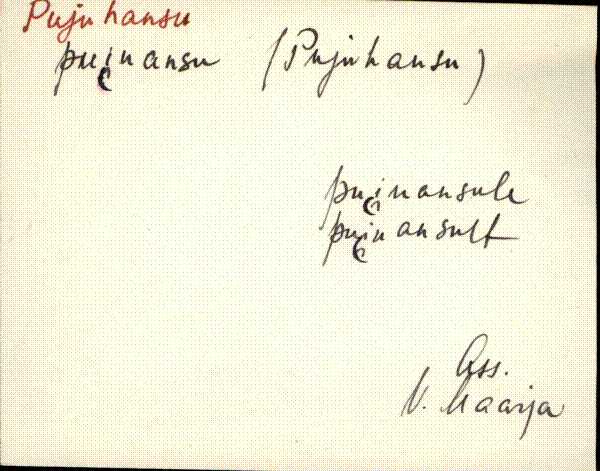 Pujuhansu
pui̯uansu (Pujuhansu)
pui̯uansule
pui̯uansult
Ass.
V. Maarja